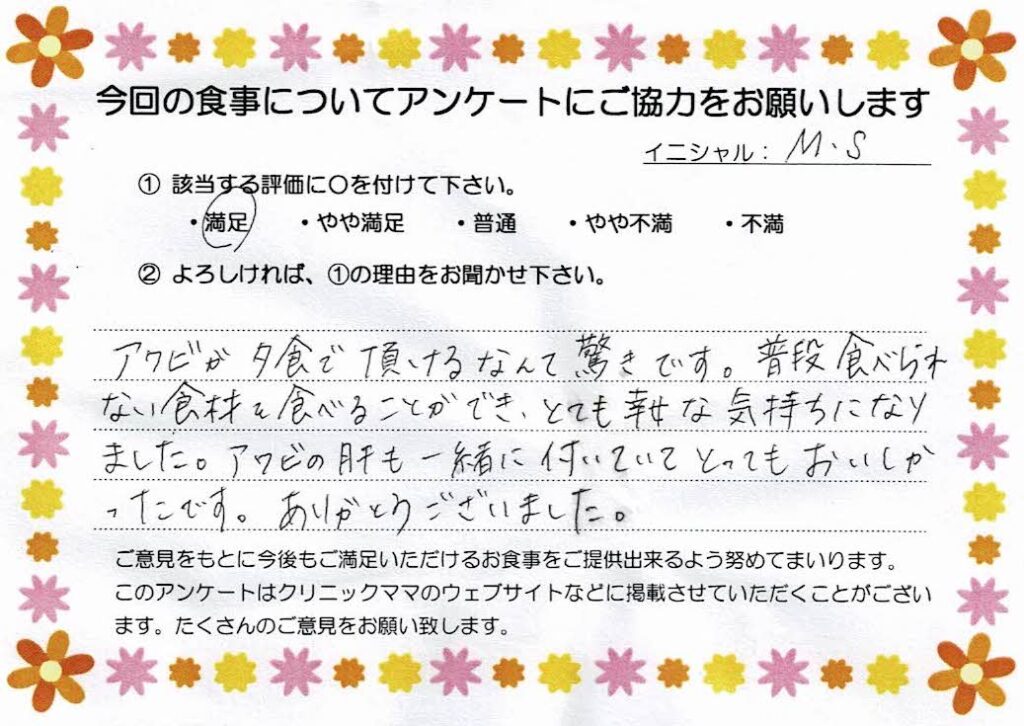 今回の食事についてアンケートにご協力をお願いします
イニシャル： M.S
① 該当する評価に〇を付けて下さい。
・満足 ・やや満足 ・普通 ・やや不満 ・不満
② よろしければ、①の理由をお聞かせ下さい。
アワビが夕食で頂けるなんて驚きです。普段食べられ
ない食材を食べることができ、とても幸せな気持ちになり
ました。アワビの肝も一緒に付いていてとってもおいしか
ったです。ありがとうございました。
ご意見をもとに今後もご満足いただけるお食事をご提供出来るよう努めてまいります。
このアンケートはクリニックママのウェブサイトなどに掲載させていただくことがござい
ます。たくさんのご意見をお願い致します。